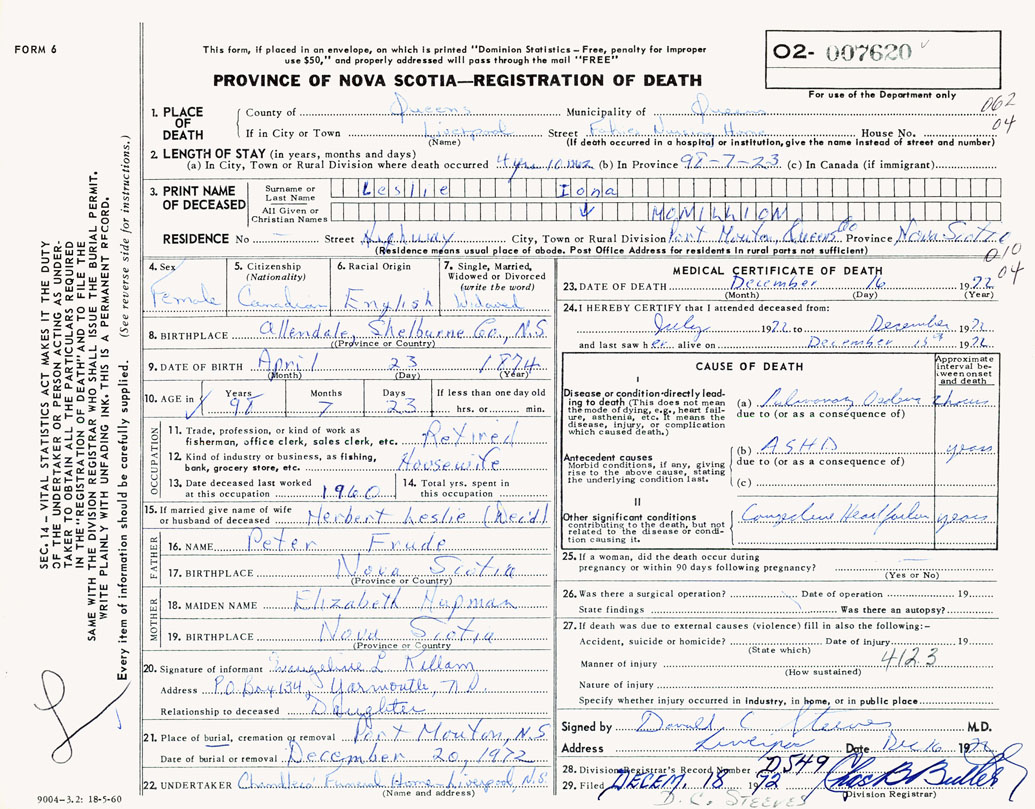 FORM 6
This form, if placed in an envelope, on which is printed "Dominion Statistics – Free, penalty for improper
use $50," and properly addressed will pass through the mail "FREE"
PROVINCE OF NOVA SCOTIA—REGISTRATION OF DEATH
O2- 007620
For use of the Department only
062
04
1. PLACE OF DEATH
County of Queens Municipality of Queens
If in City or Town Liverpool Street Nursing Home House No.
(Name) (If death occurred in a hospital or institution, give the name instead of street and number)
2. LENGTH OF STAY (in years, months and days)
(a) In City, Town or Rural Division where death occurred 4 yrs 10 (b) In Province 98-7-23 (c) In Canada (if immigrant)
3. PRINT NAME OF DECEASED
Surname or Last Name Leslie Iona
All Given or Christian Names
RESIDENCE No — Street Highway City, Town or Rural Division Port Mouton, Queens Co Province Nova Scotia
(Residence means usual place of abode. Post Office Address for residents in rural parts not sufficient)
010
04
4. Sex Female
5. Citizenship (Nationality) Canadian
6. Racial Origin English
7. Single, Married, Widowed or Divorced (write the word) Widowed
8. BIRTHPLACE Allendale, Shelburne Co., N.S.
(Province or Country)
9. DATE OF BIRTH April 23 1874
(Month) (Day) (Year)
10. AGE in Years 98 Months 7 Days 23 If less than one day old hrs. or min.
OCCUPATION
11. Trade, profession, or kind of work as fisherman, office clerk, sales clerk, etc. Retired
12. Kind of industry or business, as fishing, bank, grocery store, etc. Housewife
13. Date deceased last worked at this occupation 1960
14. Total yrs. spent in this occupation
15. If married give name of wife or husband of deceased Herbert Leslie (Dec'd)
FATHER
16. NAME Peter Frude
17. BIRTHPLACE Nova Scotia
(Province or Country)
MOTHER
18. MAIDEN NAME Elizabeth Hupman
19. BIRTHPLACE Nova Scotia
(Province or Country
20. Signature of informant Evangeline L Killam
Address P.O. Box 134, Yarmouth, N.S.
Relationship to deceased Daughter
21. Place of burial, cremation or removal Port Mouton, N.S
Date of burial or removal December 20, 1972
22. UNDERTAKER Chandlers' Funeral Home Liverpool N.S.
(Name and address)
9004–3.2: 18-5-60
MEDICAL CERTIFICATE OF DEATH
23. DATE OF DEATH December 16 1972
(Month) (Day) (Year)
24. I HEREBY CERTIFY that I attended deceased from:
July 1972 to December 1972
and last saw her alive on December 1972
CAUSE OF DEATH
Approximate interval between onset and death
I
Disease or condition directly leading to death (This does not mean the mode of dying, e.g., heart failure, asthenia, etc. It means the disease, injury, or complication which caused death.)
(a) Pulmonary Oedema hours
due to (or as a consequence of)
Antecedent causes
Morbid conditions, if any, giving rise to the above cause, stating the underlying condition last.
(b) ASHD years
due to (or as a consequence of)
(c)
II
Other significant conditions
contributing to the death, but not related to the disease or condition causing it.
Congestive Heart failure years
25. If a woman, did the death occur during pregnancy or within 90 days following pregnancy?
(Yes or No)
26. Was there a surgical operation? Date of operation 19
State findings Was there an autopsy?
27. If death was due to external causes (violence) fill in also the following:–
Accident, suicide or homicide? Date of injury 19
(State which)
4123
Manner of injury
(How sustained)
Nature of injury
Specify whether injury occurred in Industry, in home, or in public place
Signed by Donald C Steeves M.D.
Address Liverpool Date Dec 16 1972
28. Division Registrar's Record Number D549
29. Filed DECEM. 18 1972 Chas B Butler
(Division Registrar)
D. C. STEEVES
SEC. 14 – VITAL STATISTICS ACT MAKES IT THE DUTY
OF THE UNDERTAKER OR PERSON ACTING AS UNDER-
TAKER TO OBTAIN ALL THE PARTICULARS REQUIRED
IN THE "REGISTRATION OF DEATH" AND TO FILE THE
SAME WITH THE DIVISION REGISTRAR WHO SHALL ISSUE THE BURIAL PERMIT.
WRITE PLAINLY WITH UNFADING INK. THIS IS A PERMANENT RECORD.
Every item of information should be carefully supplied. (See reverse side for instructions.)